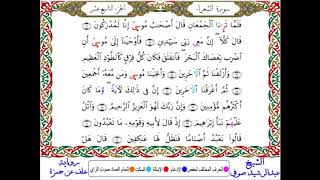 سورة الشعراء
الجزء التاسع عشر
فَلَمَّا تَرَٰٓءَا ٱلْجَمْعَانِ قَالَ أَصْحَٰبُ مُوسَىٰٓ إِنَّا لَمُدْرَكُونَ
قَالَ كَلَّآ إِنَّ مَعِى رَبِّى سَيَهْدِينِ فَأَوْحَيْنَآ إِلَىٰ مُوسَىٰٓ أَنِ
ٱضْرِب بِّعَصَاكَ ٱلْبَحْرَ فَٱنفَلَقَ فَكَانَ كُلُّ فِرْقٍ كَٱلطَّوْدِ ٱلْعَظِيمِ
وَأَزْلَفْنَا ثَمَّ ٱلْءَاخَرِينَ وَأَنجَيْنَا مُوسَىٰ وَمَن مَّعَهُۥٓ أَجْمَعِينَ
ثُمَّ أَغْرَقْنَا ٱلْءَاخَرِينَ إِنَّ فِى ذَٰلِكَ لَءَايَةً وَمَا كَانَ
أَكْثَرُهُم مُّؤْمِنِينَ وَإِنَّ رَبَّكَ لَهُوَ ٱلْعَزِيزُ ٱلرَّحِيمُ وَٱتْلُ
عَلَيْهُمْ نَبَأَ إِبْرَٰهِيمَ إِذْ قَالَ لِأَبِيهِ وَقَوْمِهِۦ مَا تَعْبُدُونَ
قَالُوا۟ نَعْبُدُ أَصْنَامًا فَنَظَلُّ لَهَا عَٰكِفِينَ قَالَ هَلْ
الشيخ
عبدالرشيد صوفي
رواية
خلف عن حمزة